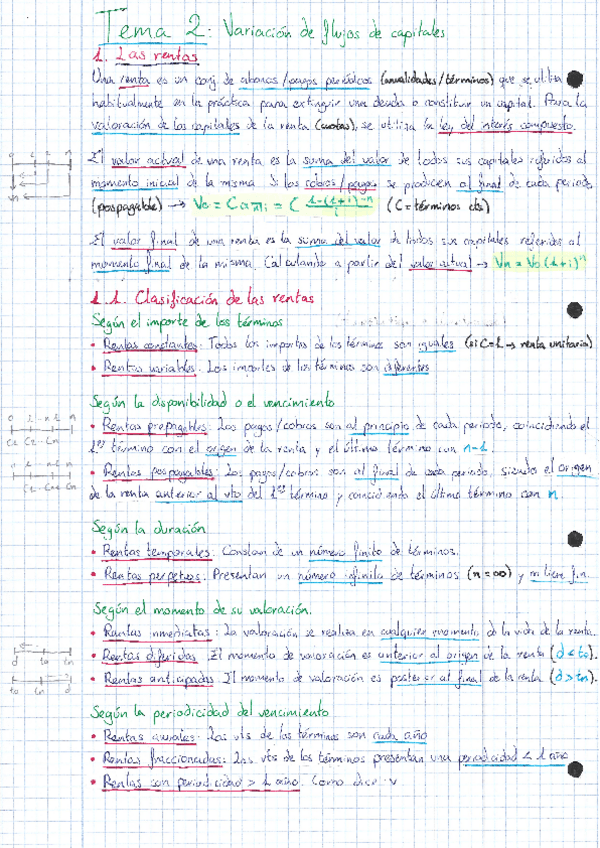 Tema 2: Variación de flujos de capitales
1. Las rentas
Una renta es un conj de abonos/pagos periódicos (anualidades/términos) que se utiliza
habitualmente en la práctica para extinguir una deuda o constituir un capital. Para la
valoración de los capitales de la renta (cuotas), se utiliza la ley del interés compuesto.
El valor actual de una renta es la suma del valor de todos sus capitales referidos al
momento inicial de la misma. Si los cobros/pagos se producen al final de cada periodo
(pospagable) → Vo = C a n¬i = C 1-(1+i)^-n / i (C = términos cts)
El valor final de una renta es la suma del valor de todos sus capitales referidos al
momento final de la misma. Calculando a partir del valor actual → Vn = Vo (1+i)^n
1.1. Clasificación de las rentas
Según el importe de los términos
• Rentas constantes. Todos los importes de los términos son iguales (si C=1 → renta unitaria)
• Rentas variables. Los importes de los términos son diferentes
Según la disponibilidad o el vencimiento
• Rentas prepagables: Los pagos/cobros son al principio de cada periodo, coincidiendo el
1er término con el origen de la renta y el último término con n-1.
• Rentas pospagables: Los pagos/cobros son al final de cada periodo, siendo el origen
de la renta anterior al vto del 1er término y coincidiendo el último término con n.
Según la duración
• Rentas temporales. Constan de un número finito de términos.
• Rentas perpetuas. Presentan un número infinito de términos (n=∞) y no tiene fin.
Según el momento de su valoración.
• Rentas inmediatas: La valoración se realiza en cualquier momento de la vida de la renta.
• Rentas diferidas. El momento de valoración es anterior al origen de la renta (d < to).
• Rentas anticipadas. El momento de valoración es posterior al final de la renta (d > tn).
Según la periodicidad del vencimiento
• Rentas anuales: Los vts de los términos son cada año
• Rentas fraccionadas: Los vts de los términos presentan una periodicidad < 1 año
• Rentas con periodicidad > 1 año.